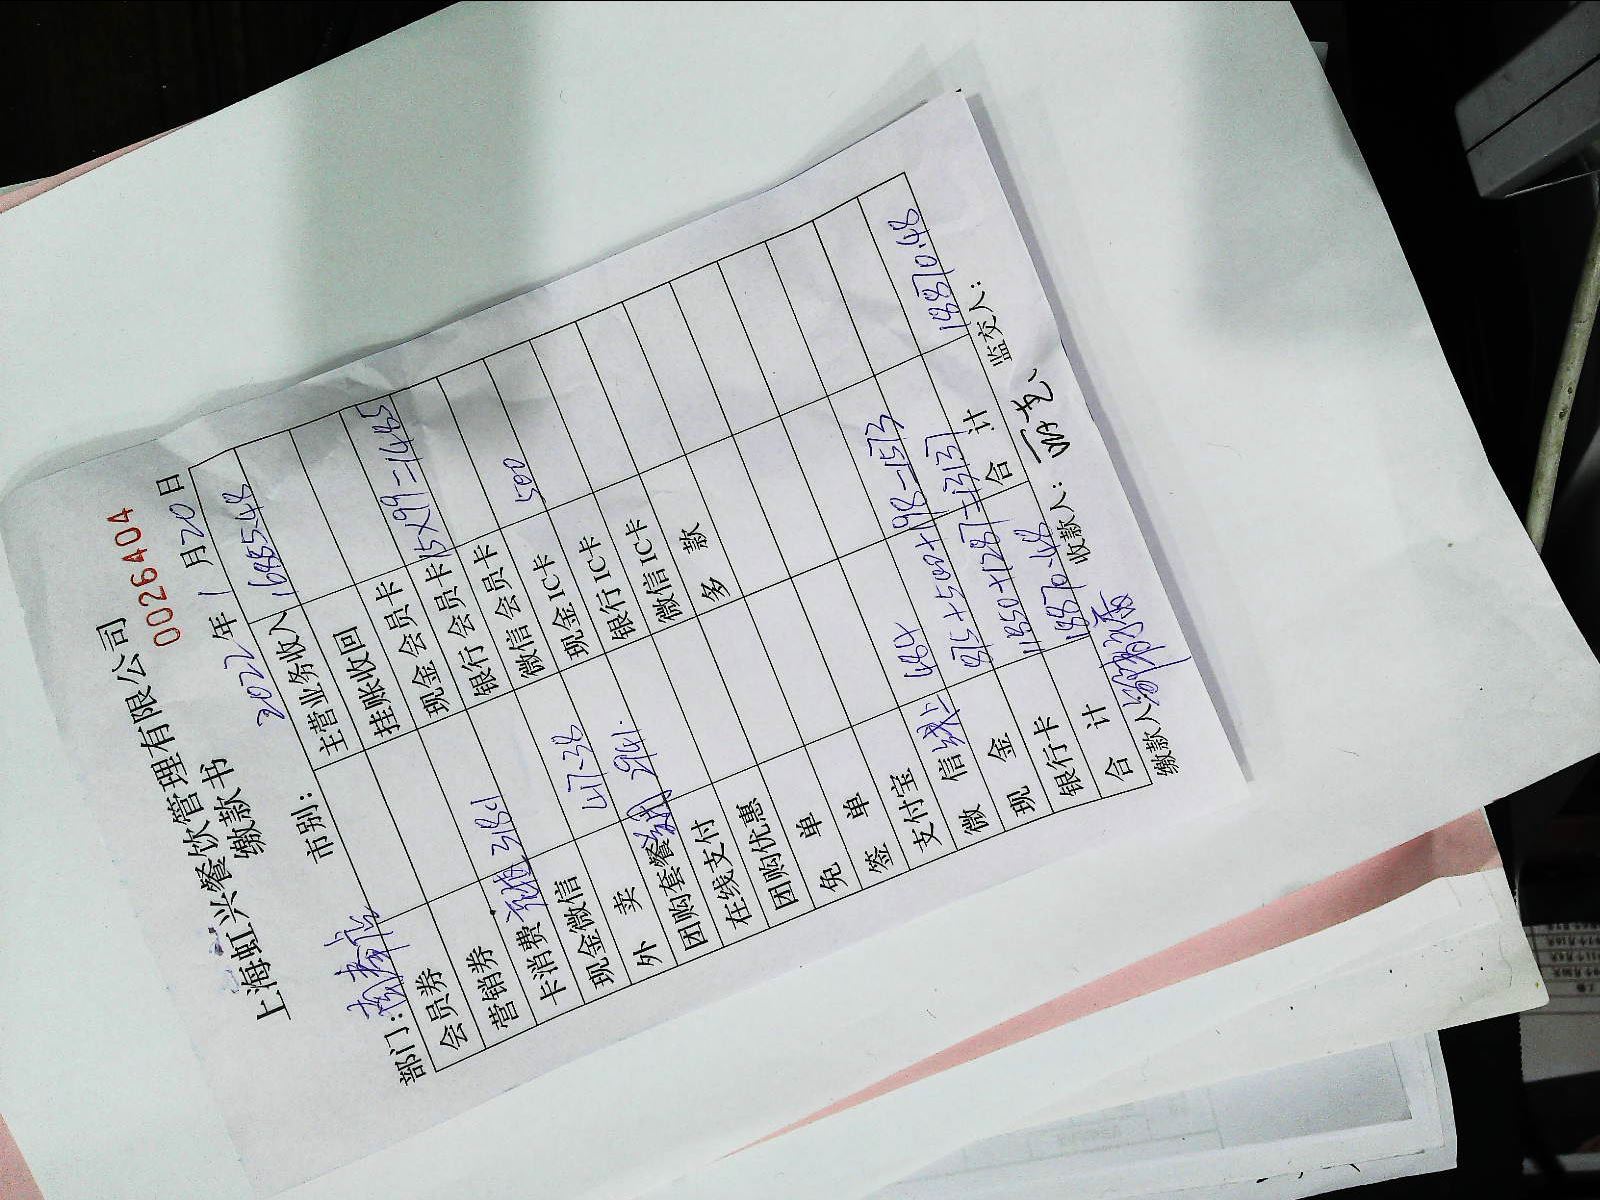 上海虹兴餐饮管理有限公司
缴款书
0026404
部门:
市别:
2022年1月20日
会员券 主营业务收入 16885.48
营销券 挂账收回
卡消费 3181 现金会员卡 15×99=1485
现金微信 银行会员卡
外 卖 47.38 微信会员卡 500
团购套餐 现金IC卡
在线支付 银行IC卡
团购优惠 微信IC卡
免 单 多 款
签 单
支付宝 484
微 信 815+500+198=1513
现 金
银行卡 11850+1287=13137
合 计 18870.48 合 计 18870.48
缴款人 收款人: 监交人: